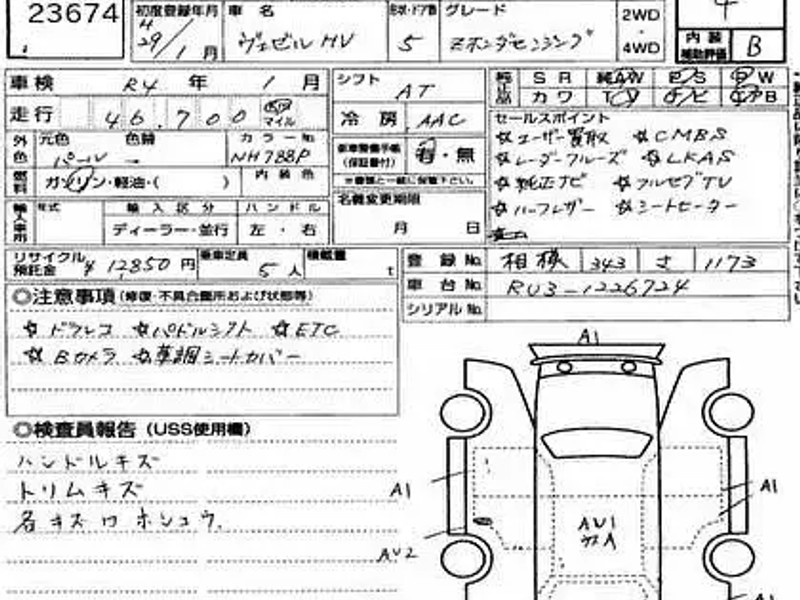 23674
初度登録年月 H29/1月
車名 ヴェゼル HV
形状・ドア数 5
グレード Zホンダセンシング
2WD・4WD
内装補助評価 B
車検 R4年 1月
シフト AT
純正品 SR 純AW PS PW
カワ TV ナビ エアB
走行 46,700 マイル
冷房 AAC
セールスポイント
☆ユーザー買取 ☆CMBS
☆レーダークルーズ ☆LKAS
☆純正ナビ ☆フルセグTV
☆ハーフレザー ☆シートヒーター
外色 元色 パール 色替 → カラーNo NH788P
(保証書付) 有・無
※書類と一緒に保管下さい。
燃料 ガソリン・軽油・( ) 内装色
名義変更期限
月 日
輸入車用 年式 輸入区分 ハンドル
ディーラー・並行 左・右
リサイクル預託金 ¥12,850円 乗車定員 5人 積載量 t
登録No. 相模 343 さ 1173
車台No. RU3-1226724
シリアルNo.
◎注意事項(修復・不具合箇所および状態等)
☆ドラレコ ☆パドルシフト ☆ETC
☆Bカメラ ☆革調シートカバー
◎検査員報告(USS使用欄)
ハンドルキズ
トリムキズ
各キズワホシュウ.
A1
A1
A1
AU1
AU2
A1